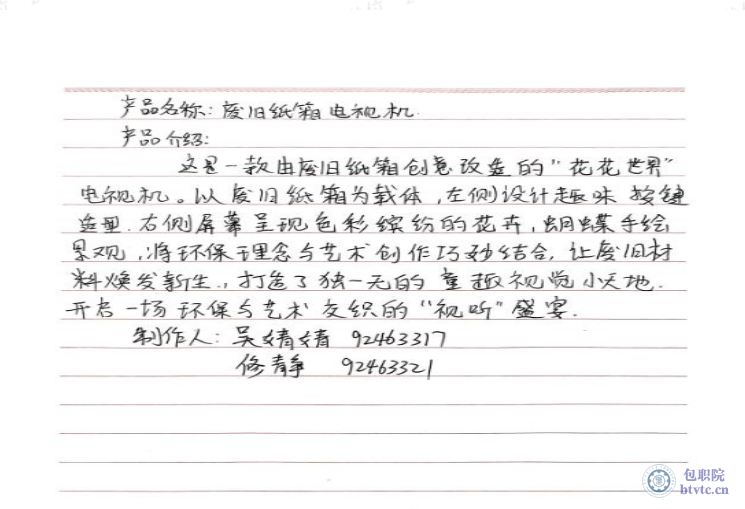 产品名称:废旧纸箱电视机.
产品介绍:
这是一款由废旧纸箱创意改造的“花花世界”
电视机。以废旧纸箱为载体,左侧设计趣味按键
造型.右侧屏幕呈现色彩缤纷的花卉,蝴蝶手绘
景观,将环保理念与艺术创作巧妙结合,让废旧材
料焕发新生.,打造了独一无的童趣视觉小天地.
开启一场环保与艺术交织的“视听”盛宴.
制作人:吴婧婧 92463317
修静 92463321
包职院
btvtc.cn